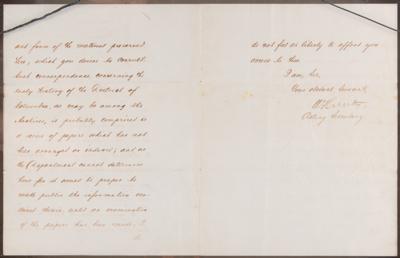 and from of the material preserved
here, which you desire to consult.
Such correspondence concerning the
early history of the District of
Columbia, as may be among the
Archives, is probably comprised in
a series of papers which has not
been arranged or indexed; and as
the Department cannot determine
how far it would be proper to
make public the information con-
tained therein, until an examination
of the papers has been made, I
do
do not feel at liberty to afford you
access to them.
I am, Sir,
Your obedient servant,
Acting Secretary